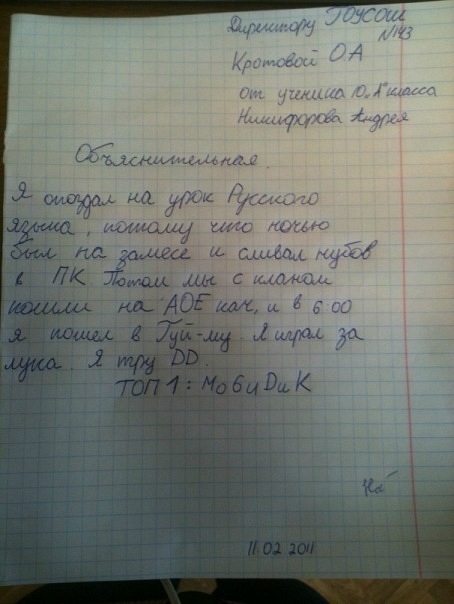 Директору ГОУСОШ
№143
Кротовой О А
от ученика 10 „А" класса
Никифорова Андрея
Объяснительная.
Я опоздал на урок Русского
языка, потому что ночью
был на замесе и сливал нубов
в ПК. Потом мы с кланом
пошли на АОЕ кач, и в 6 00
я пошел в Гуй-му. Я играл за
лука. Я тру DD.
ТОП 1 : МобиDиК
11.02 2011